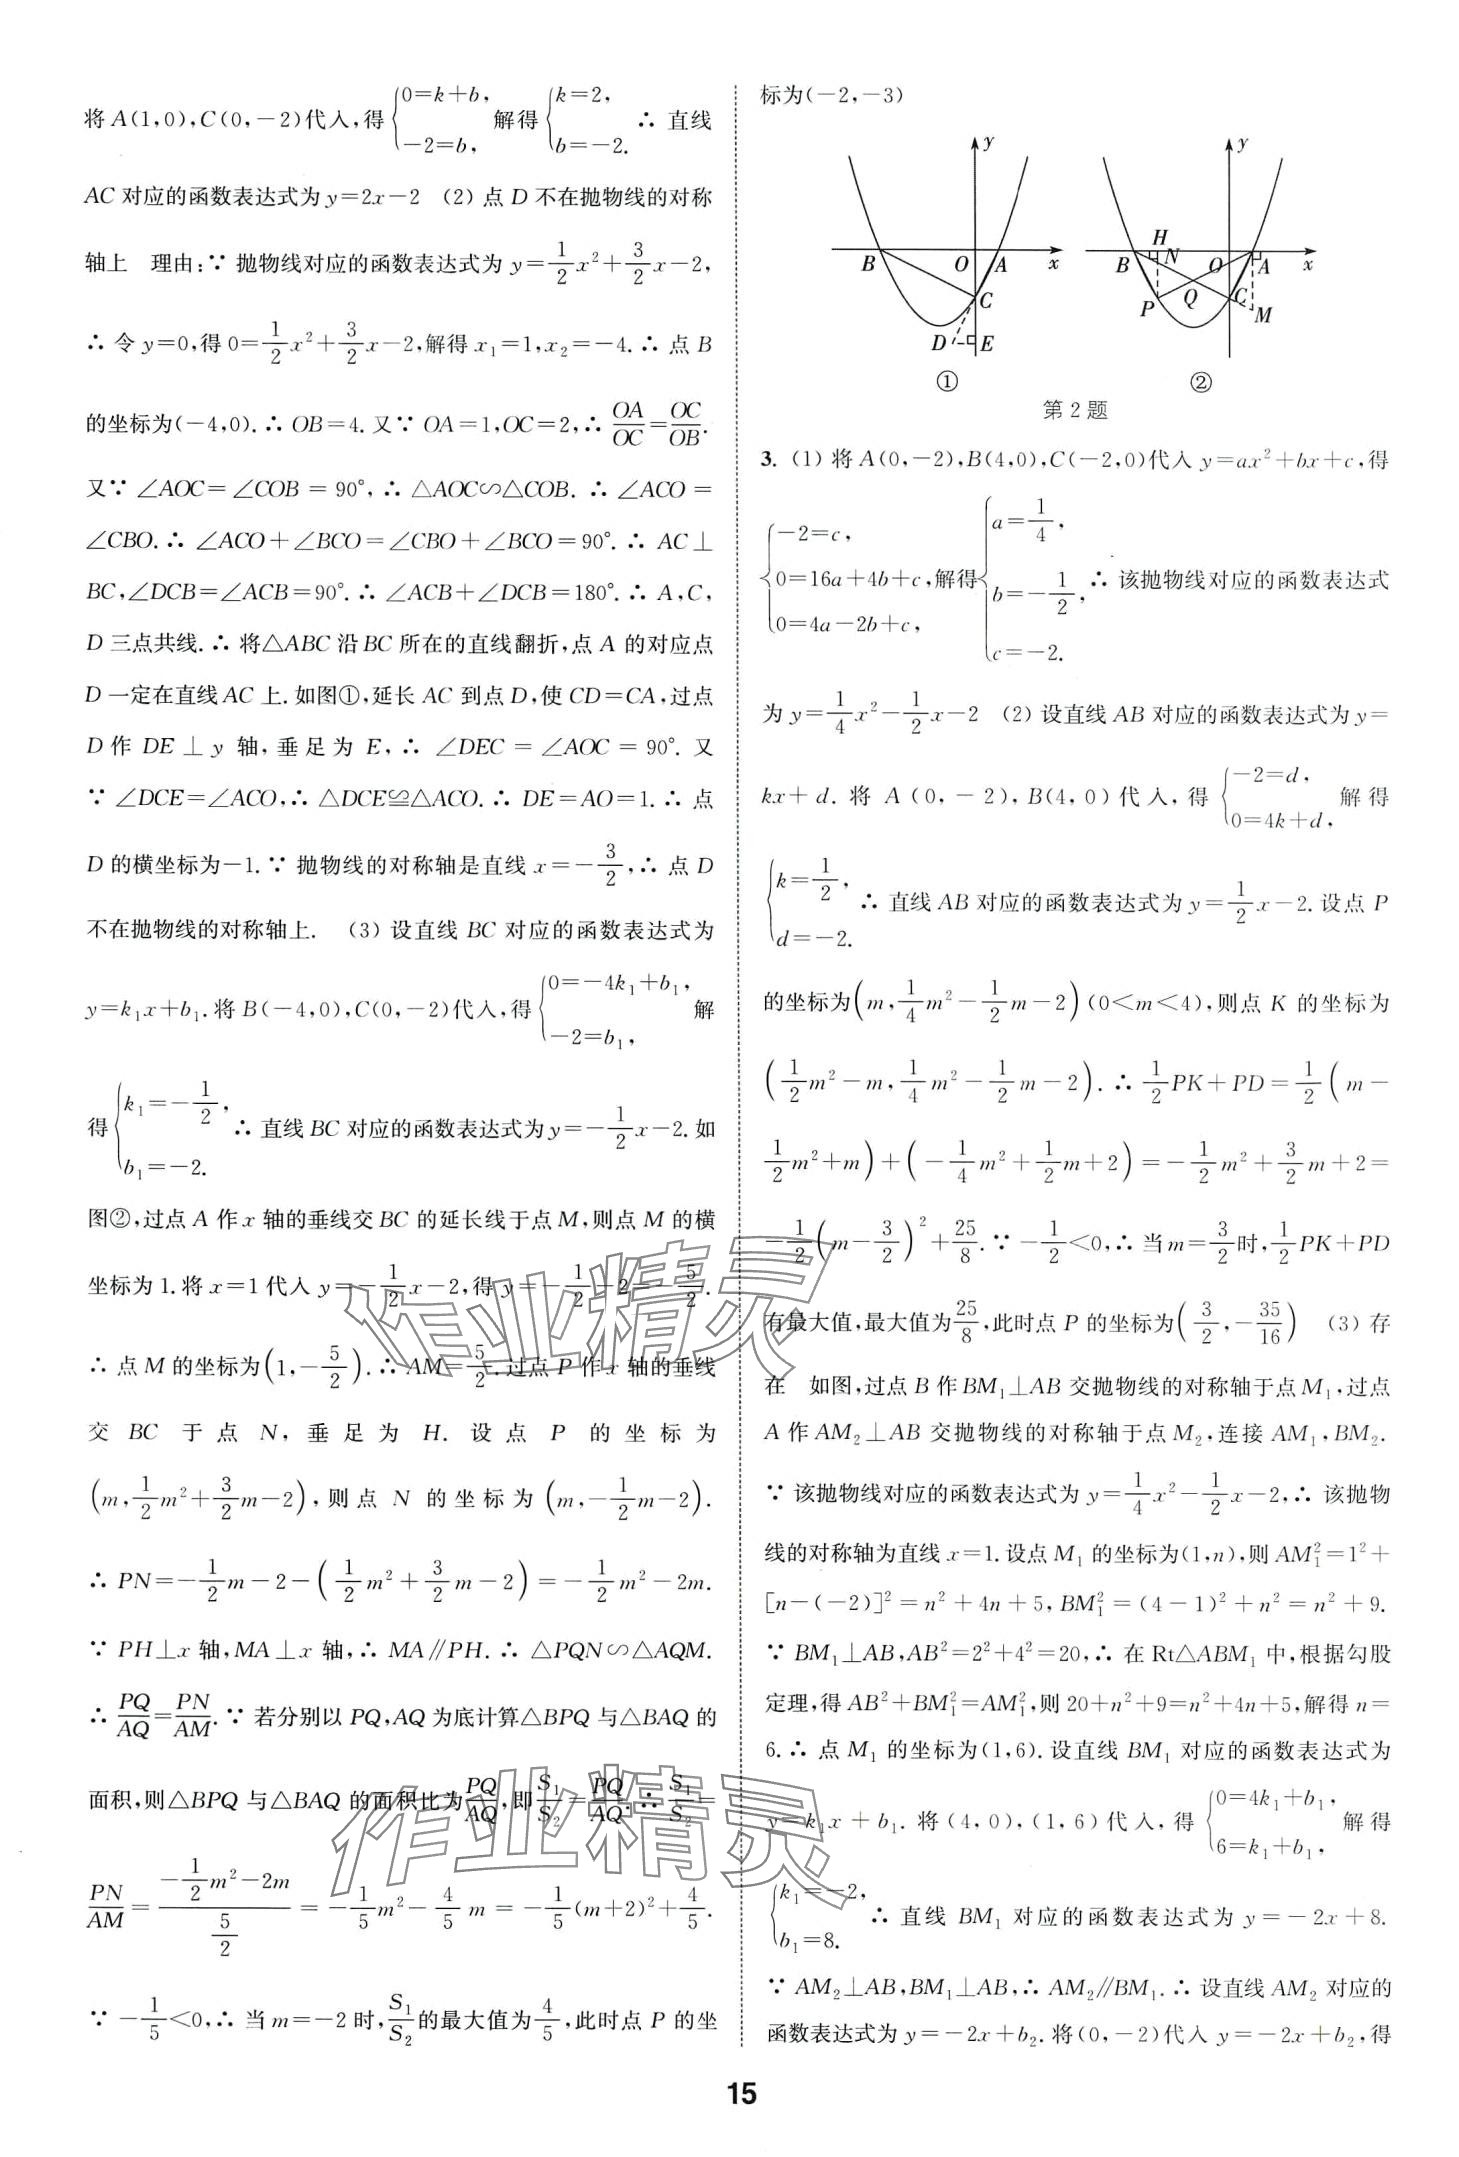 将A(1,0),C(0,-2)代入,得{0=k+b, -2=b, 解得{k=2, b=-2. ∴ 直线
AC 对应的函数表达式为 y=2x-2 (2) 点 D 不在抛物线的对称
轴上 理由:∵ 抛物线对应的函数表达式为 y=1/2x²+3/2x-2,
∴ 令 y=0,得 0=1/2x²+3/2x-2,解得 x₁=1,x₂=-4.∴ 点 B
的坐标为(-4,0).∴ OB=4.又∵ OA=1,OC=2,∴ OA/OC=OC/OB.
又∵ ∠AOC=∠COB=90°,∴ △AOC∽△COB. ∴ ∠ACO=
∠CBO.∴ ∠ACO+∠BCO=∠CBO+∠BCO=90°.∴ AC⊥
BC,∠DCB=∠ACB=90°.∴ ∠ACB+∠DCB=180°.∴ A,C,
D 三点共线.∴ 将△ABC 沿 BC 所在的直线翻折,点 A 的对应点
D 一定在直线 AC 上.如图①,延长 AC 到点 D,使 CD=CA,过点
D 作 DE⊥y 轴,垂足为 E,∴ ∠DEC=∠AOC=90°.又
∵ ∠DCE=∠ACO,∴ △DCE≌△ACO.∴ DE=AO=1.∴ 点
D 的横坐标为-1.∵ 抛物线的对称轴是直线 x=-3/2,∴ 点 D
不在抛物线的对称轴上. (3) 设直线 BC 对应的函数表达式为
y=k₁x+b₁.将 B(-4,0),C(0,-2)代入,得{0=-4k₁+b₁, -2=b₁, 解
得{k₁=-1/2, b₁=-2. ∴ 直线 BC 对应的函数表达式为 y=-1/2x-2.如
图②,过点 A 作 x 轴的垂线交 BC 的延长线于点 M,则点 M 的横
坐标为 1.将 x=1 代入 y=-1/2x-2,得 y=-1/2-2=-5/2.
∴ 点 M 的坐标为(1,-5/2).∴ AM=5/2.过点 P 作 x 轴的垂线
交 BC 于点 N,垂足为 H.设点 P 的坐标为
(m,1/2m²+3/2m-2),则点 N 的坐标为(m,-1/2m-2).
∴ PN=-1/2m-2-(1/2m²+3/2m-2)=-1/2m²-2m.
∵ PH⊥x 轴,MA⊥x 轴,∴ MA∥PH.∴ △PQN∽△AQM.
∴ PQ/AQ=PN/AM.∵ 若分别以 PQ,AQ 为底计算△BPQ 与△BAQ 的
面积,则△BPQ 与△BAQ 的面积比为PQ/AQ,即S₁/S₂=PQ/AQ.∴ S₁/S₂=
PN/AM=(-1/2m²-2m)/(5/2)=-1/5m²-4/5m=-1/5(m+2)²+4/5.
∵ -1/5<0,∴ 当 m=-2 时,S₁/S₂的最大值为4/5,此时点 P 的坐
标为(-2,-3)
y
B O A x
C
D E
①
y
H
B N O A x
P Q C
M
②
第 2 题
3. (1) 将 A(0,-2),B(4,0),C(-2,0)代入 y=ax²+bx+c,得
{-2=c, 0=16a+4b+c, 0=4a-2b+c, 解得{a=1/4, b=-1/2, c=-2. ∴ 该抛物线对应的函数表达式
为 y=1/4x²-1/2x-2 (2) 设直线 AB 对应的函数表达式为 y=
kx+d.将 A(0,-2),B(4,0)代入,得{-2=d, 0=4k+d, 解得
{k=1/2, d=-2. ∴ 直线 AB 对应的函数表达式为 y=1/2x-2.设点 P
的坐标为(m,1/4m²-1/2m-2)(0<m<4),则点 K 的坐标为
(1/2m²-m,1/4m²-1/2m-2).∴ 1/2PK+PD=1/2(m-
1/2m²+m)+(-1/4m²+1/2m+2)=-1/2m²+3/2m+2=
-1/2(m-3/2)²+25/8.∵ -1/2<0,∴ 当 m=3/2时,1/2PK+PD
有最大值,最大值为25/8,此时点 P 的坐标为(3/2,-35/16) (3) 存
在 如图,过点 B 作 BM₁⊥AB 交抛物线的对称轴于点 M₁,过点
A 作 AM₂⊥AB 交抛物线的对称轴于点 M₂,连接 AM₁,BM₂.
∵ 该抛物线对应的函数表达式为 y=1/4x²-1/2x-2,∴ 该抛物
线的对称轴为直线 x=1.设点 M₁ 的坐标为(1,n),则 AM₁²=1²+
[n-(-2)]²=n²+4n+5,BM₁²=(4-1)²+n²=n²+9.
∵ BM₁⊥AB,AB²=2²+4²=20,∴ 在 Rt△ABM₁ 中,根据勾股
定理,得 AB²+BM₁²=AM₁²,则 20+n²+9=n²+4n+5,解得 n=
6.∴ 点 M₁ 的坐标为(1,6).设直线 BM₁ 对应的函数表达式为
y=k₁x+b₁.将(4,0),(1,6)代入,得{0=4k₁+b₁, 6=k₁+b₁, 解得
{k₁=-2, b₁=8. ∴ 直线 BM₁ 对应的函数表达式为 y=-2x+8.
∵ AM₂⊥AB,BM₁⊥AB,∴ AM₂∥BM₁.∴ 设直线 AM₂ 对应的
函数表达式为 y=-2x+b₂.将(0,-2)代入 y=-2x+b₂,得
作业精灵
作业精灵
15